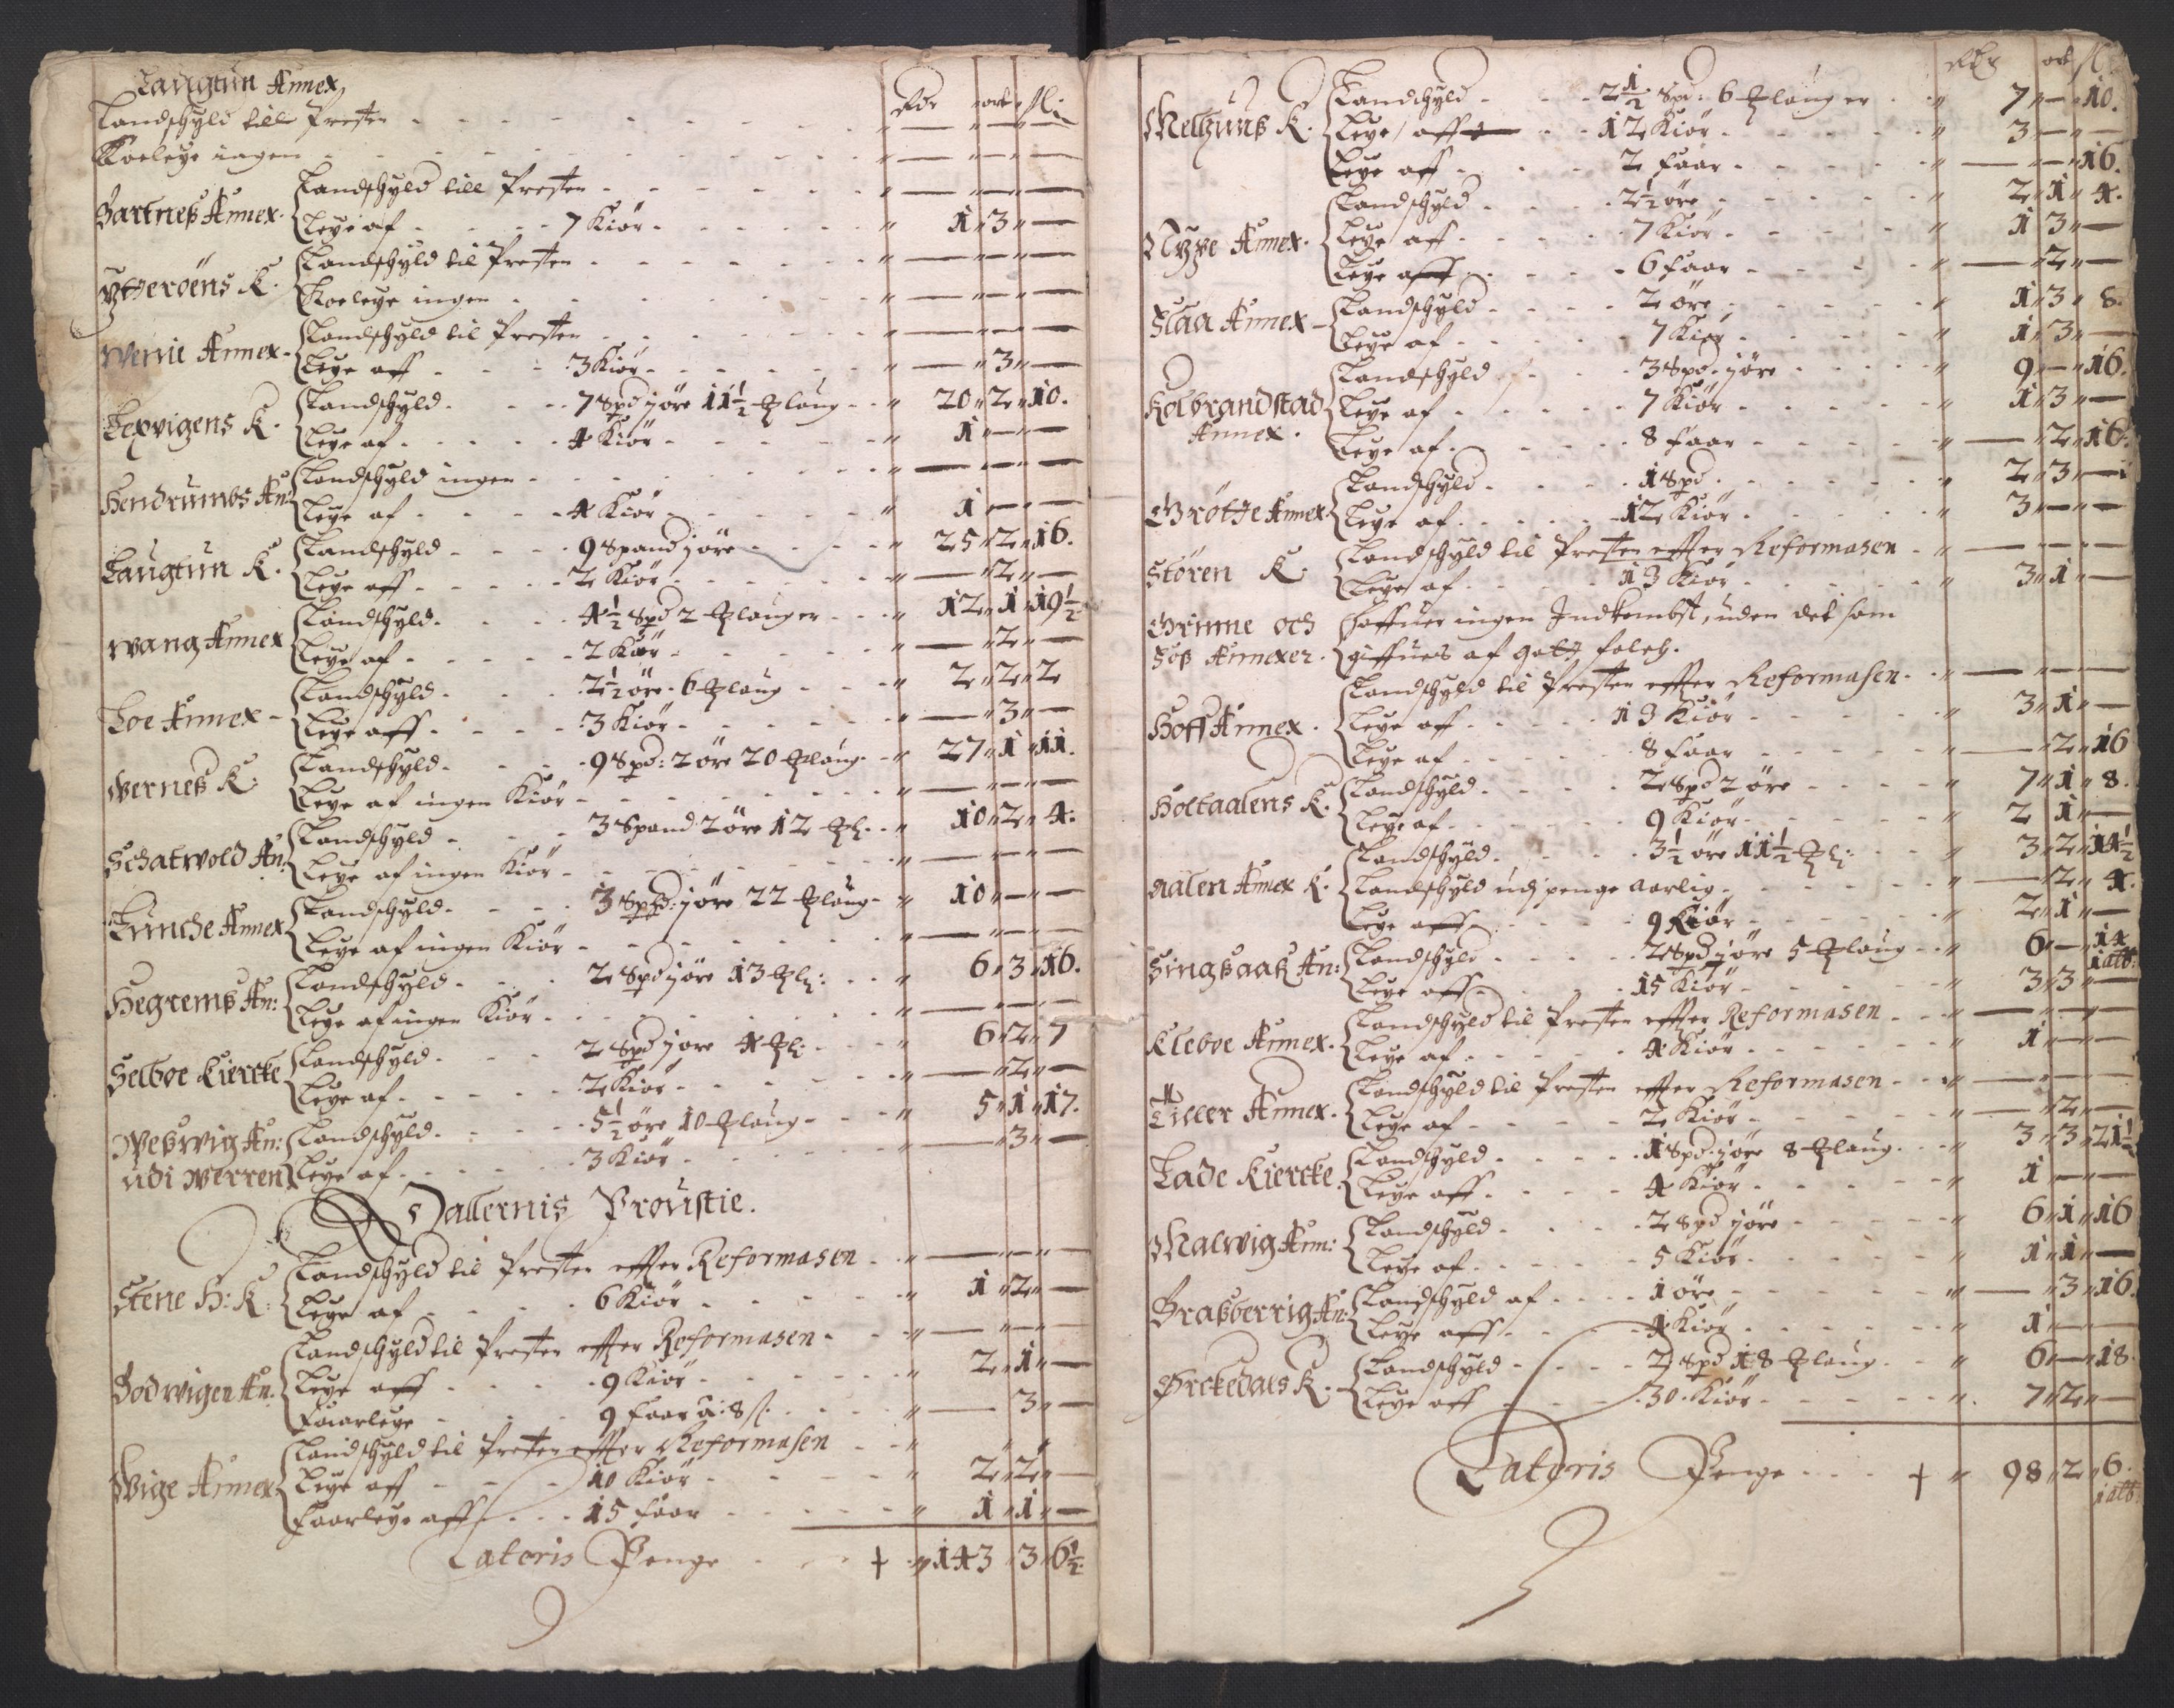 Laugtun Annex
Rdr " ort " ſl:
Landschyld till Presten - - - " — " — " —
Koeleye ingen - - - " — " — " —
Bartneß Annex. Landschyld till Presten - - - " — " — " —
Leye af - - 7 Kiör - - - " 1 " 3 " —
Ytterøens K. Landschyld til Presten - - - " — " — " —
Koeleye ingen - - - " — " — " —
Werrie Annex. Landschyld til Presten - - - " — " — " —
Leye aff - - 3 Kiör - - - " — " 3 " —
Lexvigens K. Landschyld - - 7 Spd jöre 11½ Pzlaug - - " 20 " 2 " 10.
Leye af - - 4 Kiör - - - " 1 " — " —
Hendrumbs An: Landschyld ingen - - - " — " — " —
Leye af - - 4 Kiör - - - " 1 " — " —
Laugtun K. Landschyld - - 9 Spand jöre - - - " 25 " 2 " 16.
Leye aff - - 2 Kiör - - - " — " 2 " —
Wang Annex Landschyld - - 4½ Spd 2 Pzlauger - - " 12 " 1 " 19½
Leye af - - 2 Kiör - - - " — " 2 " —
Loe Annex - Landschyld - - 2½ öre 6 Pzlaug - - " 2 " 2 " 2
Leye aff - - 3 Kiör - - - " — " 3 " —
Verneß K: Landschyld - - 9 Spd: 2 öre 20 Pzlaug - " 27 " 1 " 11.
Leye af ingen Kiör - - - " — " — " —
Schatwold An: Landschyld - - 3 Spand 2 öre 12 Pzl: - " 10 " 2 " 4:
Leye af ingen Kiör - - - " — " — " —
Lunche Annex Landschyld - - 3 Spd: jöre 22 Pzlaug - " 10 " — " —
Leye af ingen Kiör - - - " — " — " —
Hegremß An: Landschyld - - 2 Spd jöre 13 Pzl: - - " 6 " 3 " 16.
Leye af ingen Kiör - - - " — " — " —
Selboe Kiercke Landschyld - - 2 Spd jöre 4 Pzl: - - " 6 " 2 " 7
Leye af - - 2 Kiör - - - " — " 2 " —
Weßwig An: Landschyld - - 5½ öre 10 Pzlaug - - " 5 " 1 " 17.
udi Werren Leye af - - 3 Kiör - - - " — " 3 " —
Dallernis Proustie.
Stene H: K: Landschyld til Presten effter Reformasen - " — " — " —
Leye af - - 6 Kiör - - - " 1 " 2 " —
Bodwigen An. Landschyld til Presten effter Reformasen - " — " — " —
Leye aff - - 9 Kiör - - - " 2 " 1 " —
Faarleye - - 9 faar à: 8 ſl. - - " — 3 " —
Wige Annex Landschyld til Presten effter Reformasen - - " " "
Leye aff - - 10 Kiör - - - " 2 " 2 " —
Faarleye aff - - 15 faar - - - " 1 " 1 " —
Lateris Penge - - † " 143 " 3 " 6½
Rdr ort ſl
Melhuus K. Landschyld - - 2½ Spd: 6 Pzlauger - " 7 " — " 10.
Leye aff - - 12 Kiör - - - " 3 — " —
Leye aff - - 2 faar - - - " — " — " 16.
Nype Annex. Landschyld - - 2½ öre - - - " 2 " 1 " 4.
Leye aff - - 7 Kiör - - - " 1 " 3 " —
Leye aff - - 6 faar - - - " — " 2 " —
Flaa Annex - Landschyld - - 2 öre - - - " 1 " 3 " 8.
Leye af - - 7 Kiör - - - " 1 " 3 " —
Kolbrandstad Landschyld - - 3 Spd. jöre - - - " 9 " — " 16.
Annex. Leye af - - 7 Kiör - - - " 1 " 3 " —
Leye af - - 8 faar - - - " — " 2 " 16.
Grøtte Annex Landschyld - - 1 Spd. - - - " 2 " 3 " —
Leye af - - 12 Kiör - - - " 3 " — " —
Støren K. Landschyld til Presten effter Reformasen - " — " — " —
Leye af - - 13 Kiör - - - " 3 " 1 " —
Grinne och haffuer ingen Indkombst, uden det som
Soß Annexer. giffues af gott folch.
Hoff Annex. Landschyld til Presten effter Reformasen - " — " — " —
Leye aff - - 13 Kiör - - - " 3 " 1 " —
Leye af - - 8 faar - - - " — " 2 " 16
Holtaalens K. Landschyld - - 2 Spd 2 öre - - - " 7 " 1 " 8.
Leye af - - 9 Kiör - - - " 2 " 1 " —
Aalen Annex K. Landschyld - - 3½ öre 11½ Pzl: - - " 3 " 2 " 14½
Landschyld udj penge aarlig - - - " — " 2 " 4.
Leye aff - - 9 Kiör - - - " 2 " 1 " —
Singsaas An: Landschyld - - 2 Spd jöre 5 Pzlaug - " 6 " — " 14
1 alb:
Leye aff - - 15 Kiör - - - " 3 " 3 " —
Kleboe Annex. Landschyld til Presten effter Reformasen - " — " — " —
Leye af - - 4 Kiör - - - " 1 " — " —
Tiller Annex. Landschyld til Presten effter Reformasen - " — " — " —
Leye af - - 2 Kiör - - - " — " 2 " —
Lade Kiercke. Landschyld - - 1 Spd. jöre 8 Pzlaug. - " 3 " 3 " 21½
Leye aff - - 4 Kiör - - - " 1 " — " —
Malwig Ann: Landschyld - - 2 Spd jöre - - - " 6 " 1 " 16
Leye af - - 5 Kiör - - - " 1 " 1 " —
Braßberrig An: Landschyld af - - 1 öre - - - " — " 3 " 16.
Leye aff - - 4 Kiör - - - " 1 " — " —
Ørckedals K. Landschyld - - 2 Spd 18 Pzlaug - - " 6 " — " 18.
Leye aff - - 30. Kiör - - - " 7 " 2 " —
Lateris Penge - - † " 98 " 2 " 6.
1 alb: